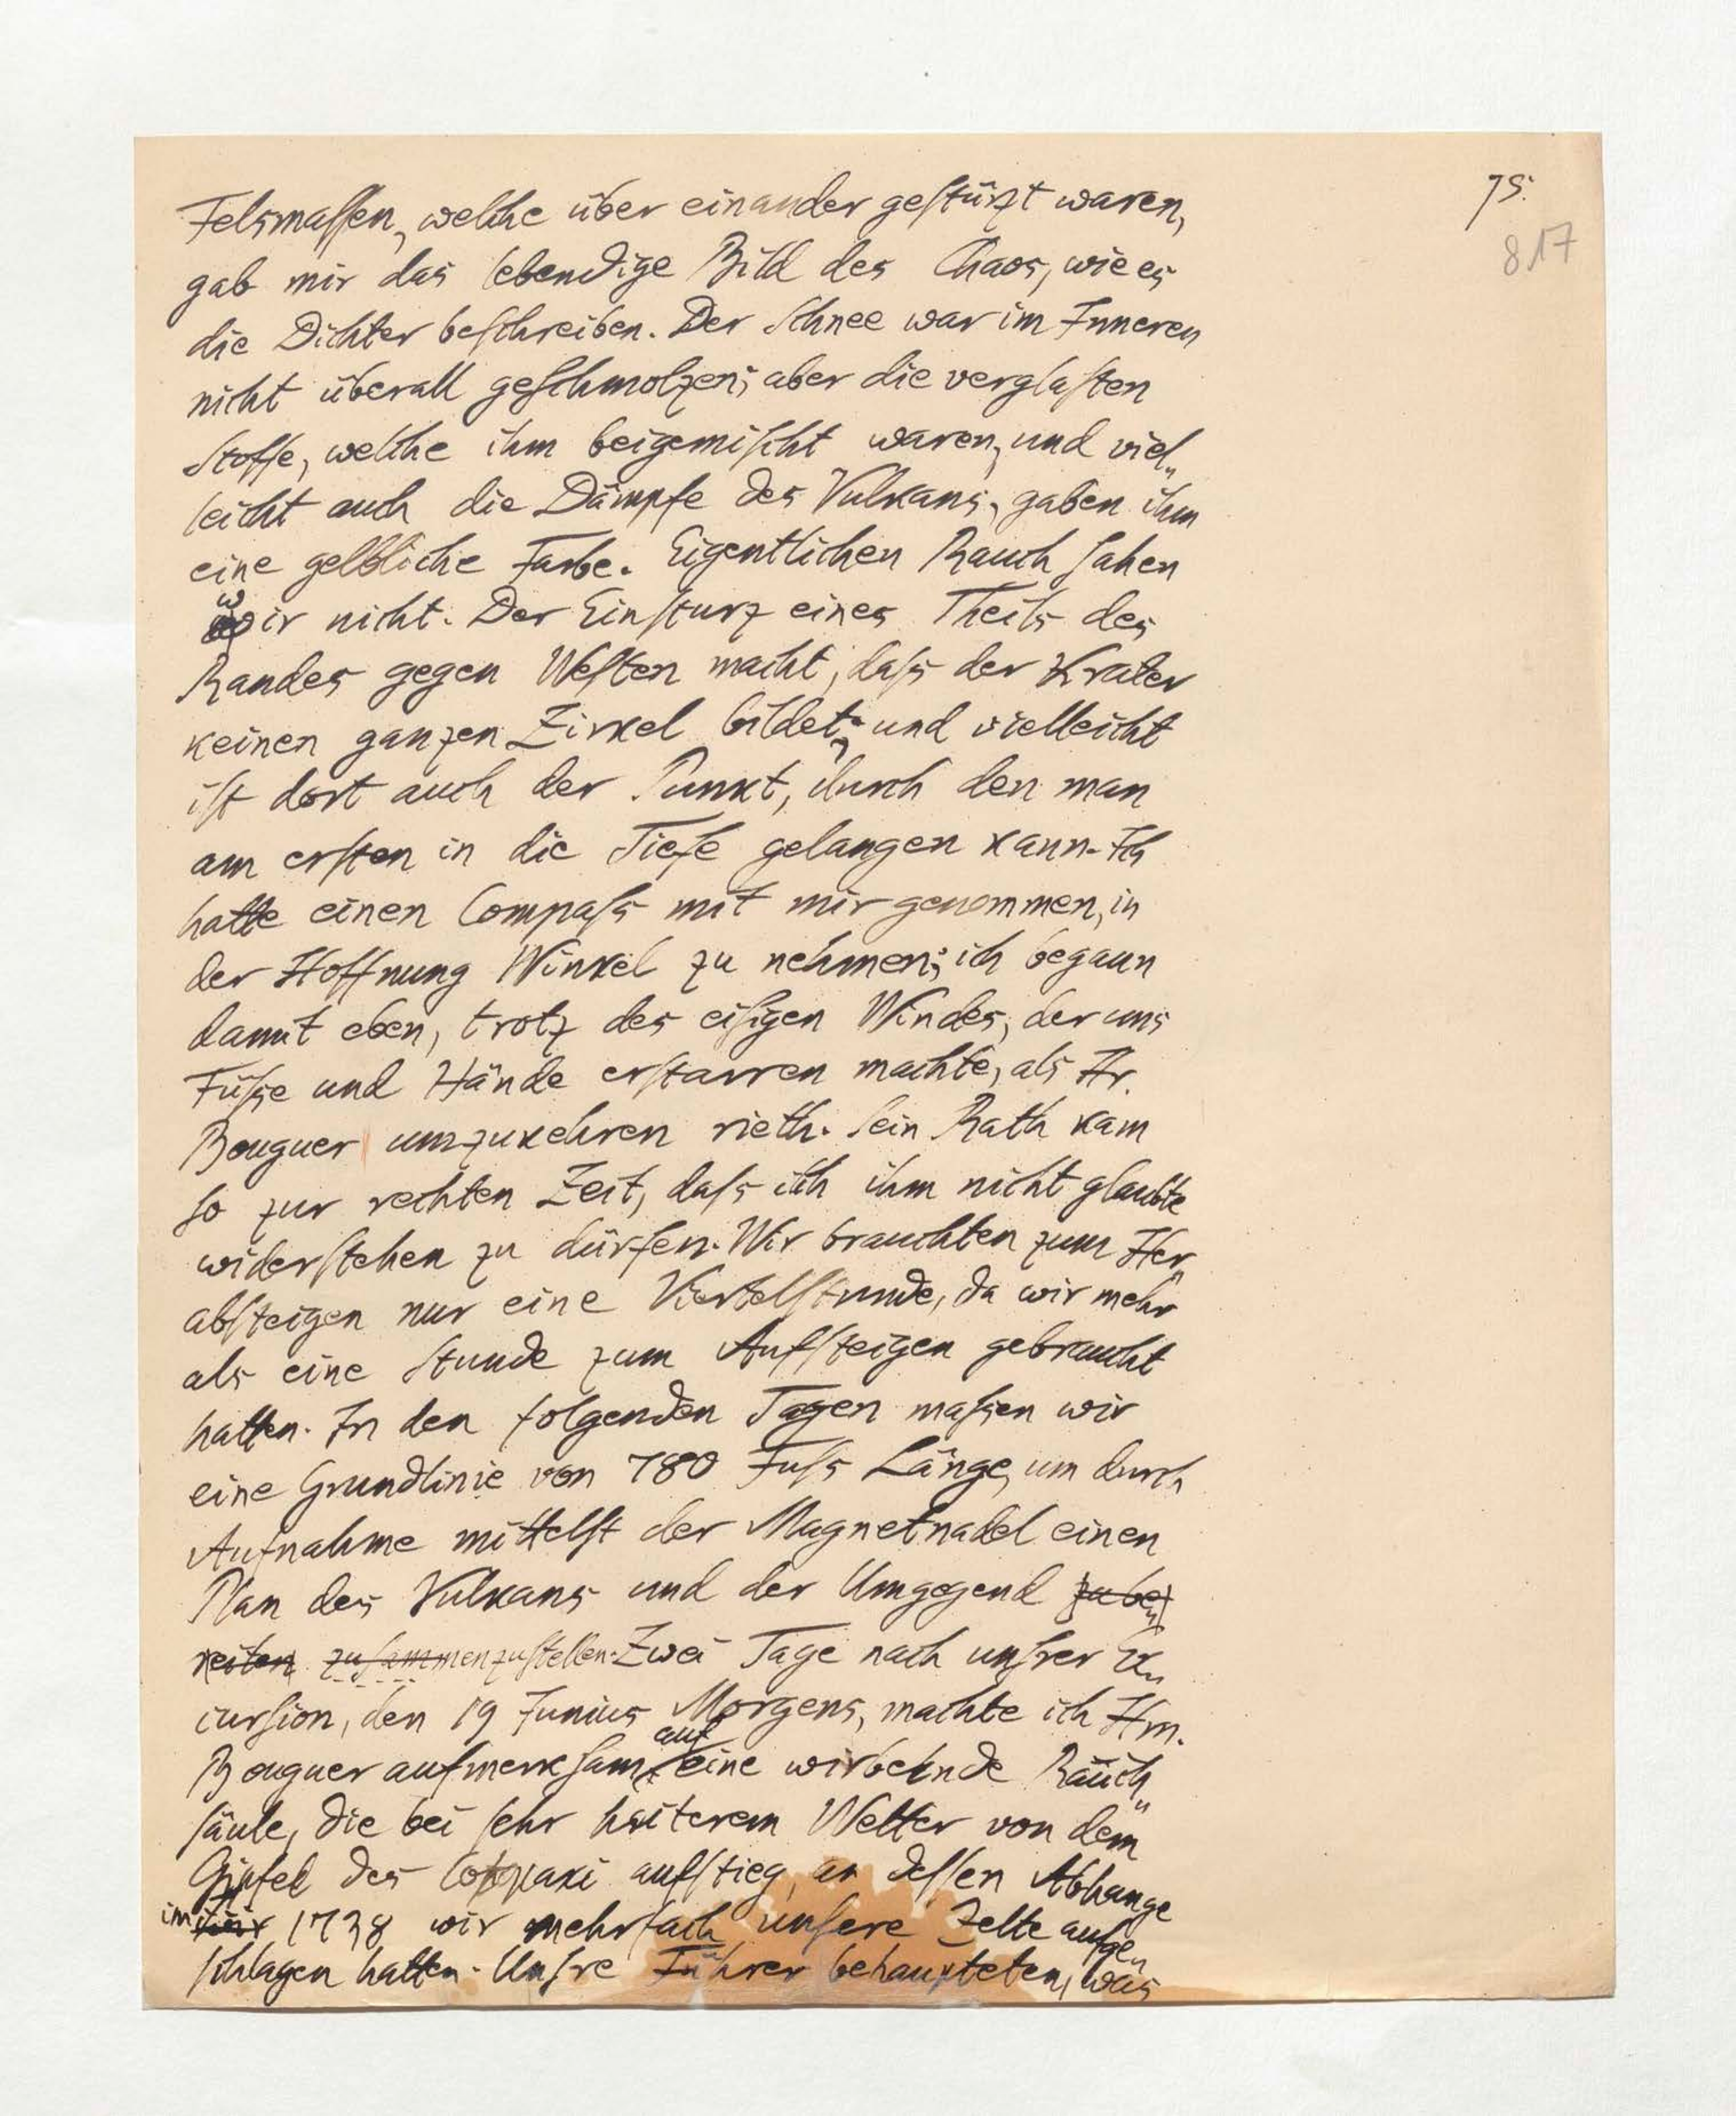 75.
817
Felsmaſſen, welche über einander geſtürzt waren,
gab mir das lebendige Bild des Chaos, wie es
die Dichter beſchreiben. Der Schnee war im Inneren
nicht überall geſchmolzen; aber die verglaſten
Stoffe, welche ihm beigemiſcht waren, und viel„
leicht auch die Dämpfe des Vulkans, gaben ihm
eine gelbliche Farbe. Eigentlichen Rauch ſahen
wir nicht. Der Einſturz eines Theils des
Randes gegen Weſten macht, daſs der Krater
keinen ganzen Zirkel bildet, und vielleicht
iſt dort auch der Punkt, durch den man
am erſten in die Tiefe gelangen kann. Ich
hatte einen Compaſs mit mir genommen, in
der Hoffnung Winkel zu nehmen; ich begann
damit eben, trotz des eiſigen Windes, der uns
Füſse und Hände erſtarren machte, als Hr.
Bouguer umzukehren rieth. Sein Rath kam
ſo zur rechten Zeit, daſs ich ihm nicht glaubte
widerſtehen zu dürfen. Wir brauchten zum Her„
abſteigen nur eine Viertelſtunde, da wir mehr
als eine Stunde zum Aufſteigen gebraucht
hatten. In den folgenden Tagen maſsen wir
eine Grundlinie von 780 Fuſs Länge, um durch
Aufnahme mittelſt der Magnetnadel einen
Plan des Vulkans und der Umgegend zu be„
reiten zuſammenzuſtellen. Zwei Tage nach unſrer Ex„
curſion, den 19 Junius Morgens, machte ich Hrn.
Bouguer aufmerkſam auf eine wirbelnde Rauch„
ſäule, die bei ſehr heiterem Wetter von dem
Gipfel des Cotopaxi aufſtieg, an deſſen Abhange
im Jahr 1738 wir mehrfach unſere Zelte aufge„
ſchlagen hatten. Unſre Führer behaupteten, was